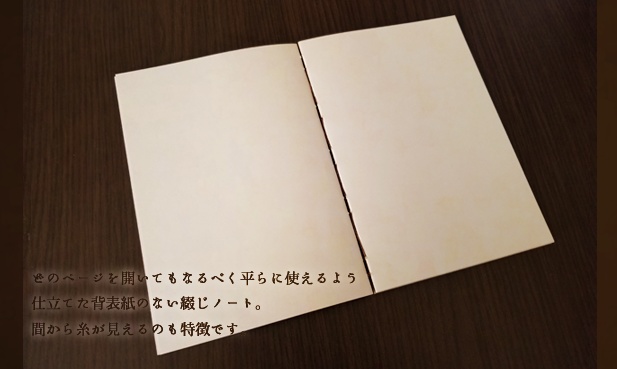 どのページを開いてもなるべく平らに使えるよう
仕立てた背表紙のない綴じノート。
間から糸が見えるのも特徴です